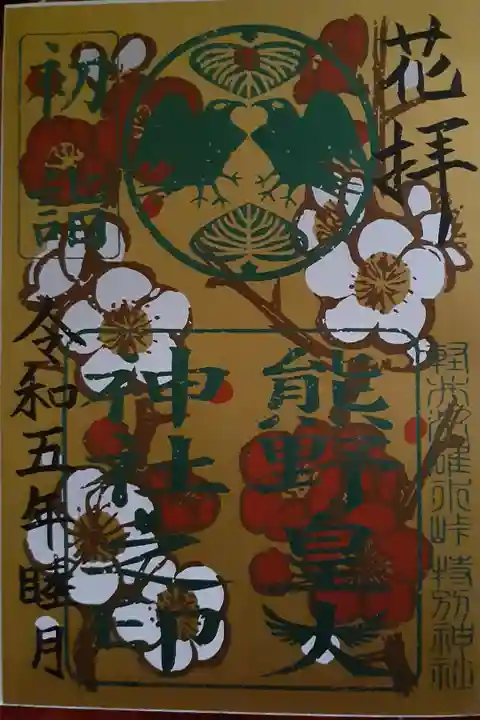 花拝
初詣
軽井沢碓氷峠 特別神社
熊野皇大
神社之印
令和五年睦月